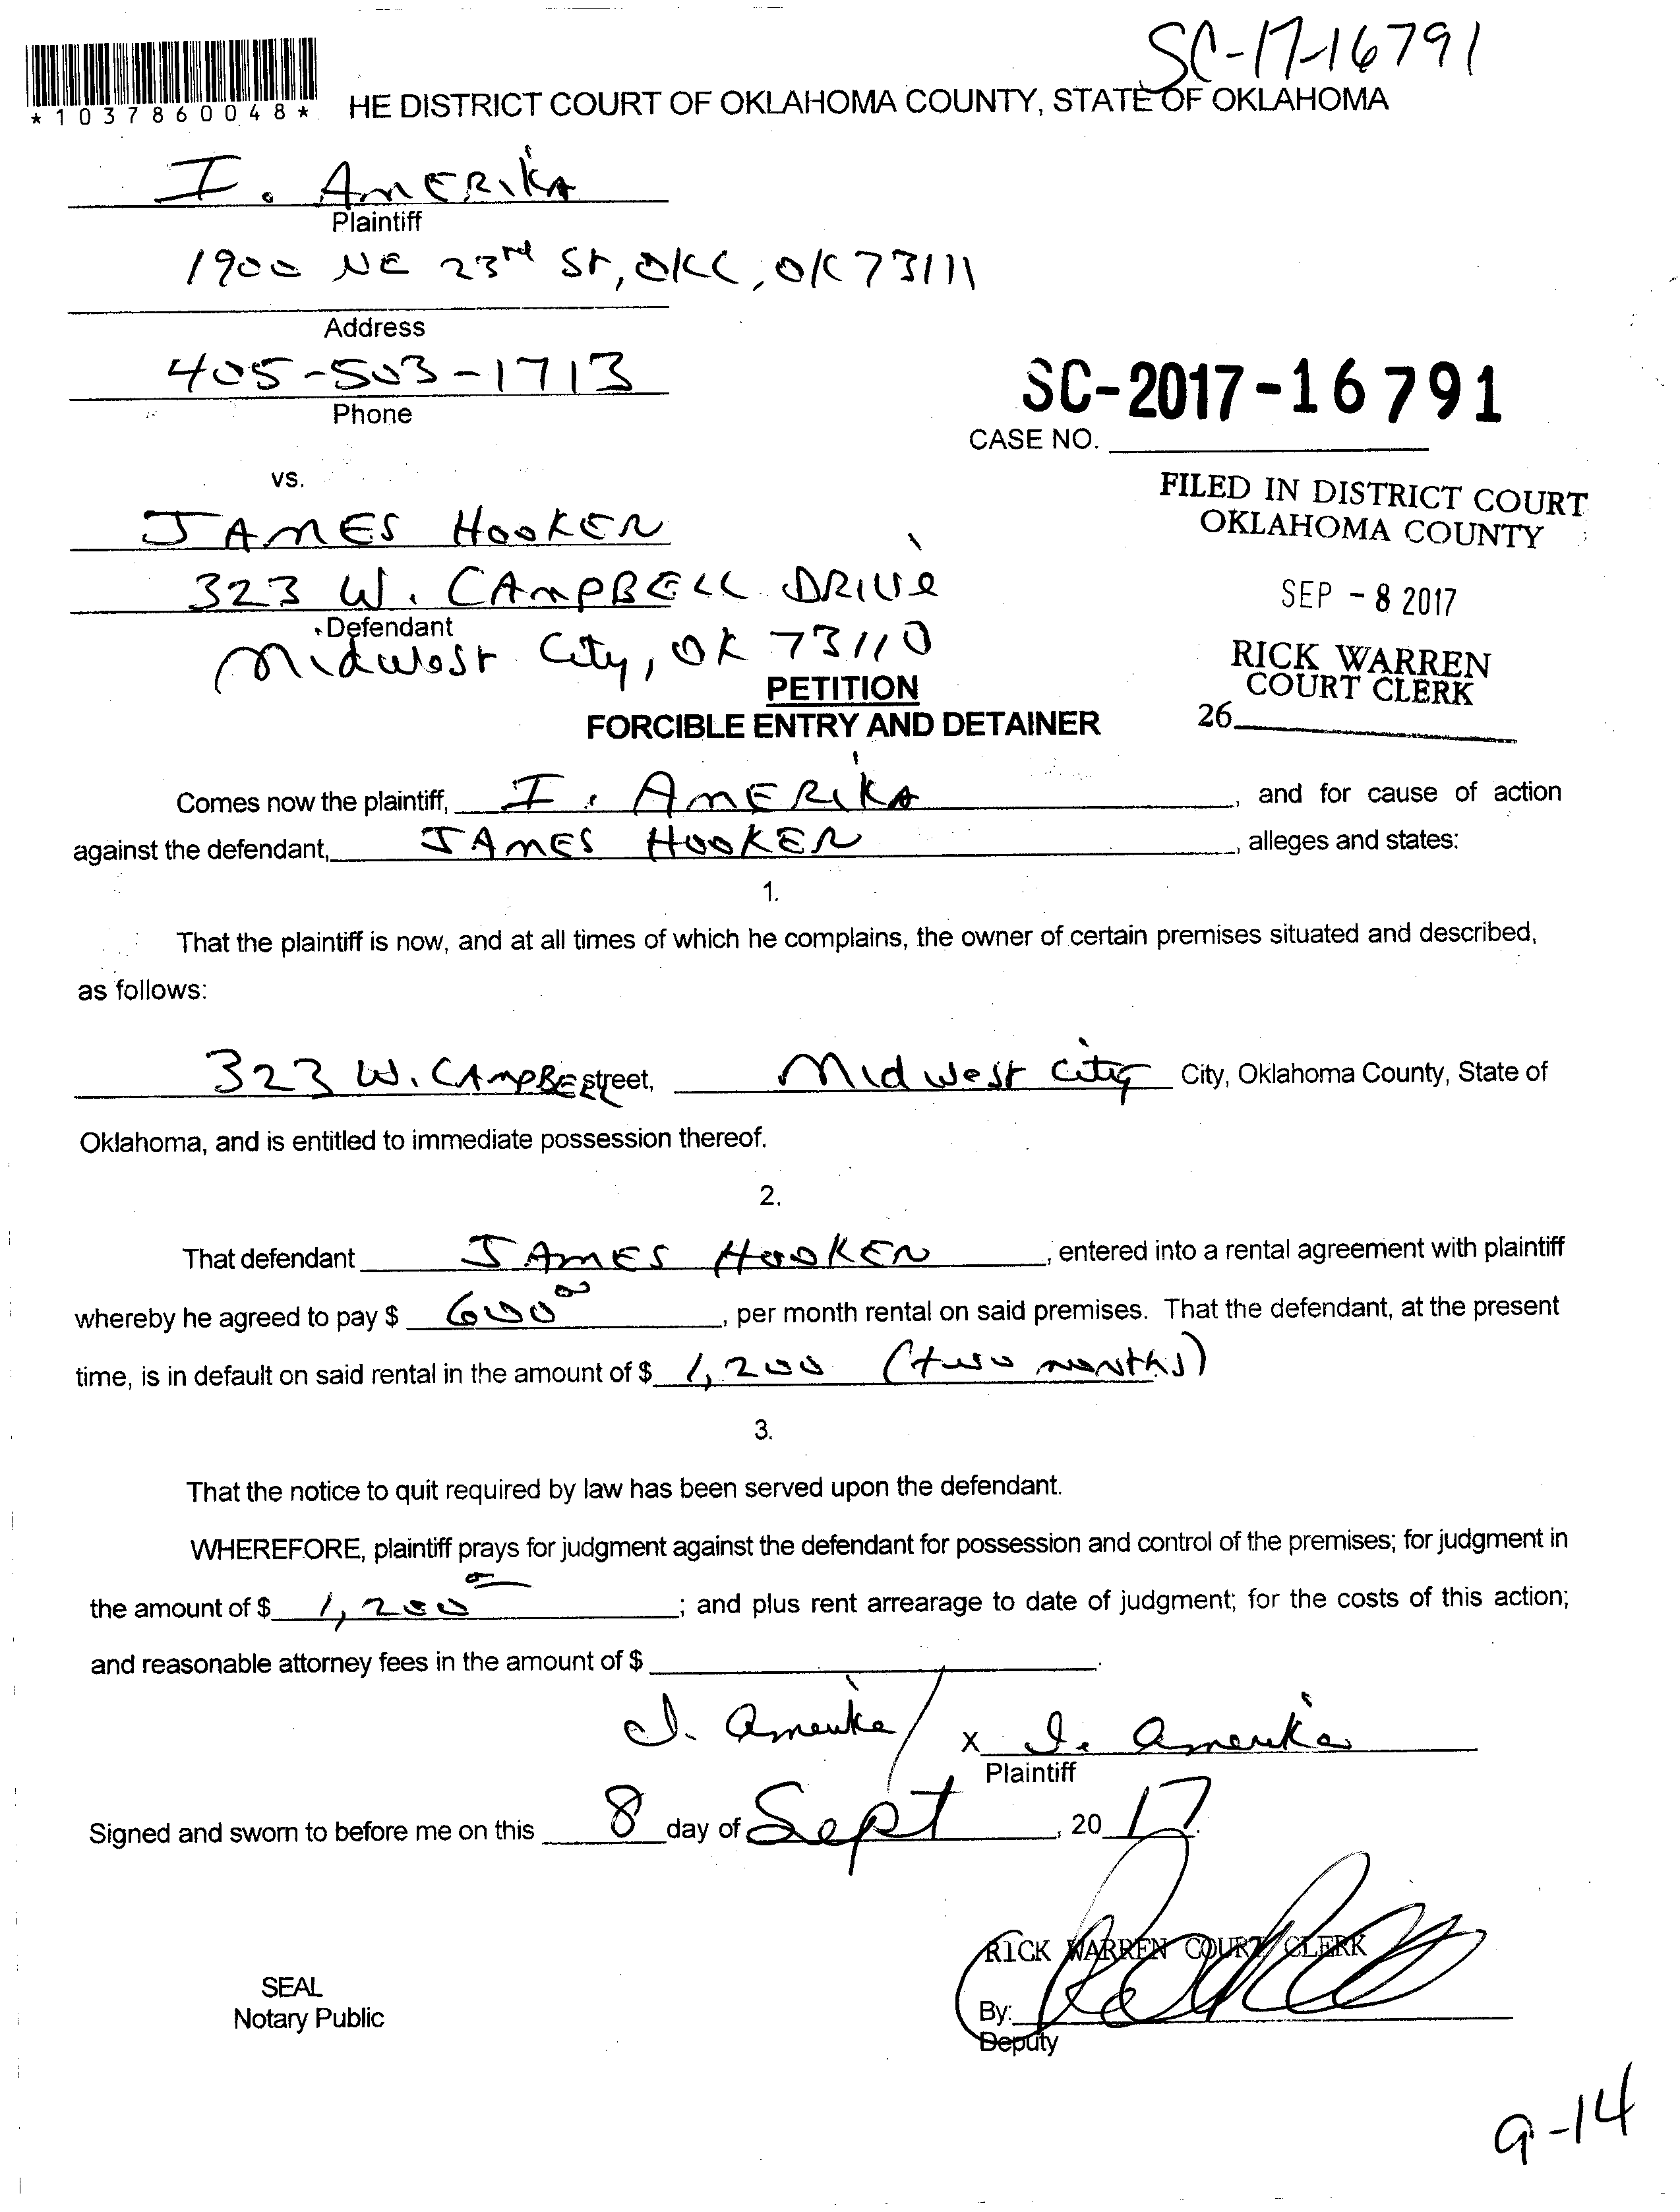 SC-17-16791
*1037860048* HE DISTRICT COURT OF OKLAHOMA COUNTY, STATE OF OKLAHOMA
I. AMERIKA
Plaintiff
1900 NE 23rd St, OKC, OK 73111
Address
405-503-1713
Phone
SC-2017-16791
CASE NO.
vs.
FILED IN DISTRICT COURT
OKLAHOMA COUNTY
JAMES HOOKER
323 W. CAMPBELL DRIVE
SEP - 8 2017
Defendant
Midwest City, OK 73110
RICK WARREN
COURT CLERK
PETITION
26
FORCIBLE ENTRY AND DETAINER
Comes now the plaintiff, I. AMERIKA, and for cause of action
against the defendant, JAMES HOOKER, alleges and states:
1.
That the plaintiff is now, and at all times of which he complains, the owner of certain premises situated and described,
as follows:
323 W. CAMPBELL street, Midwest City City, Oklahoma County, State of
Oklahoma, and is entitled to immediate possession thereof.
2.
That defendant JAMES HOOKER, entered into a rental agreement with plaintiff
whereby he agreed to pay $ 600 00, per month rental on said premises. That the defendant, at the present
time, is in default on said rental in the amount of $ 1,200 (two months)
3.
That the notice to quit required by law has been served upon the defendant.
WHEREFORE, plaintiff prays for judgment against the defendant for possession and control of the premises; for judgment in
the amount of $ 1,200; and plus rent arrearage to date of judgment; for the costs of this action;
and reasonable attorney fees in the amount of $ .
I. Amerika / x I. Amerika
Plaintiff
Signed and sworn to before me on this 8 day of Sept, 2017.
RICK WARREN COURT CLERK
SEAL
Notary Public
By:
Deputy
9-14